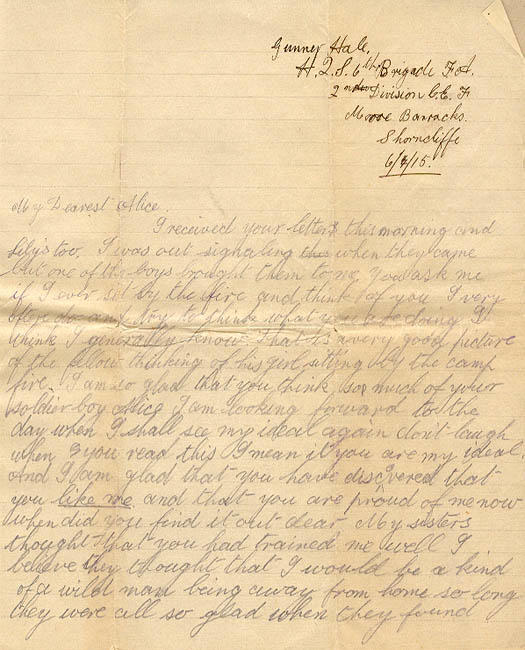 Gunner Hale.
H.Q.S. 6th Brigade F.A.
2nd Division C.E.F
Moore Barracks.
Shorncliffe
6/9/15.
My Dearest Alice
I received your letters this morning and
Lily's too. I was out signaling when they came
but one of the boys brought them to me. You ask me
if I ever sit by the fire and think of you I very
often do and try to think what you are doing I
think I generally know. That is a very good picture
of the fellow thinking of his girl sitting by the camp
fire. I am so glad that you think so much of your
soldier boy Alice I am looking forward to the
day when I shall see my ideal again don't laugh
when you read this I mean it you are my ideal.
And I am glad that you have discovered that
you like me and that you are proud of me now
when did you find it out dear. My sisters
thought that you had trained me well I
believe they thought that I would be a kind
of a wild man being away from home so long
they were all so glad when they found